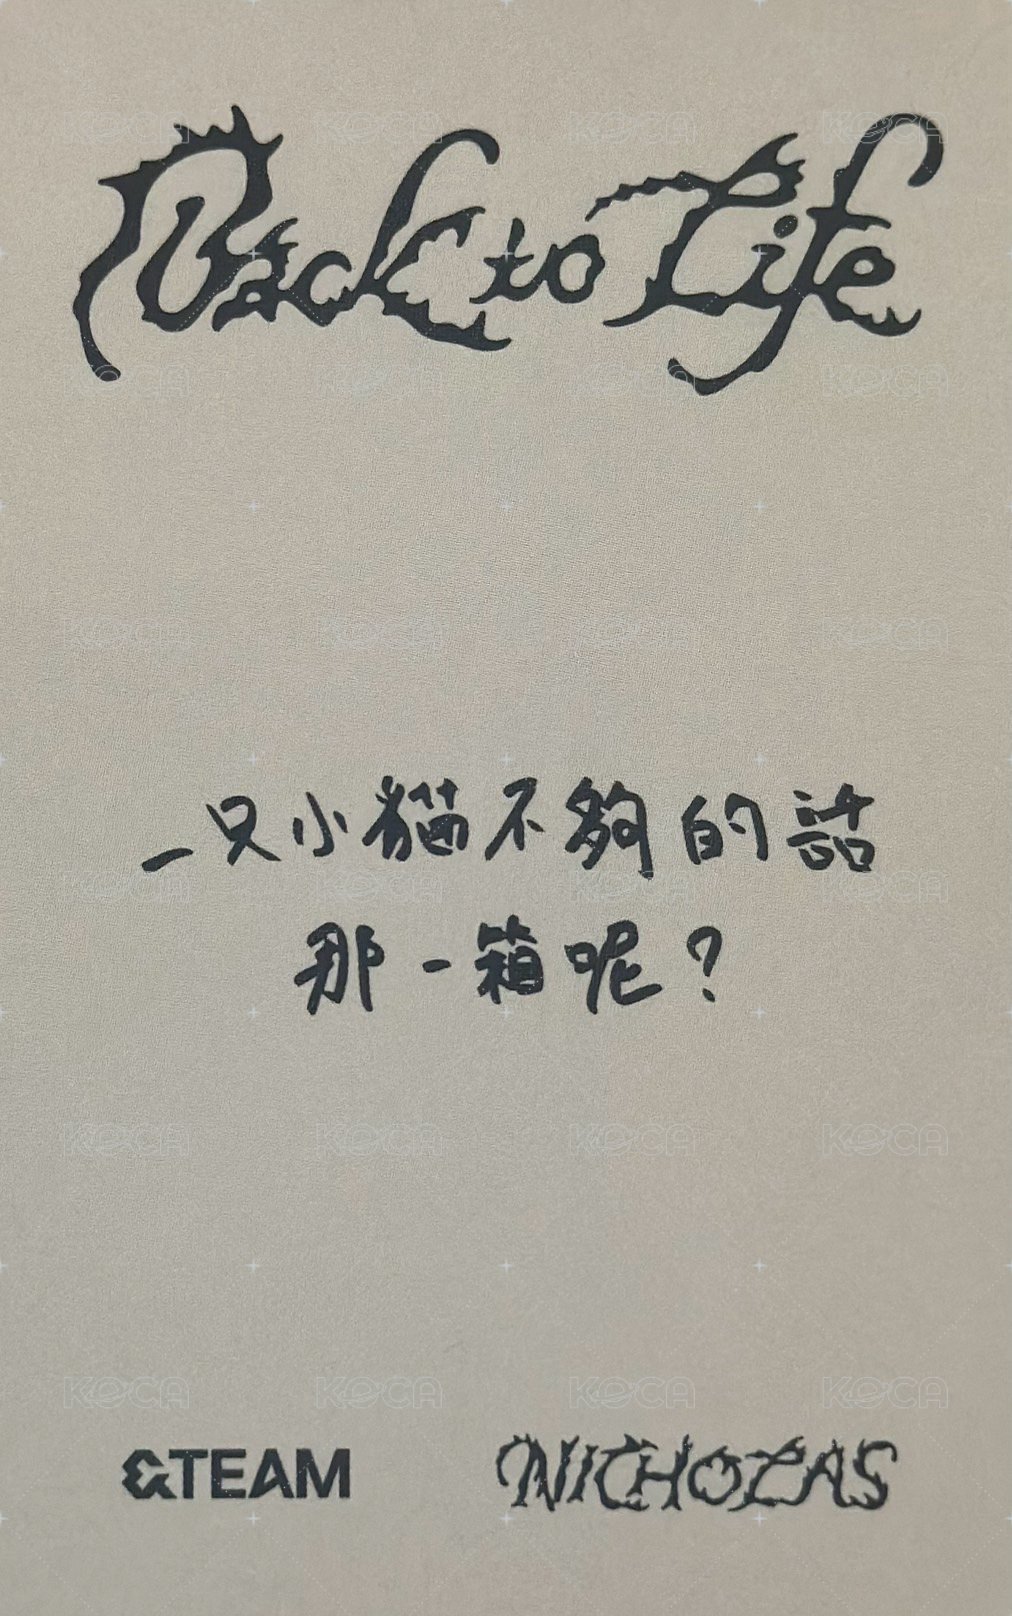 Back to Life
一只小貓不夠的話
那一箱呢？
&TEAM NICHOLAS
KOCA